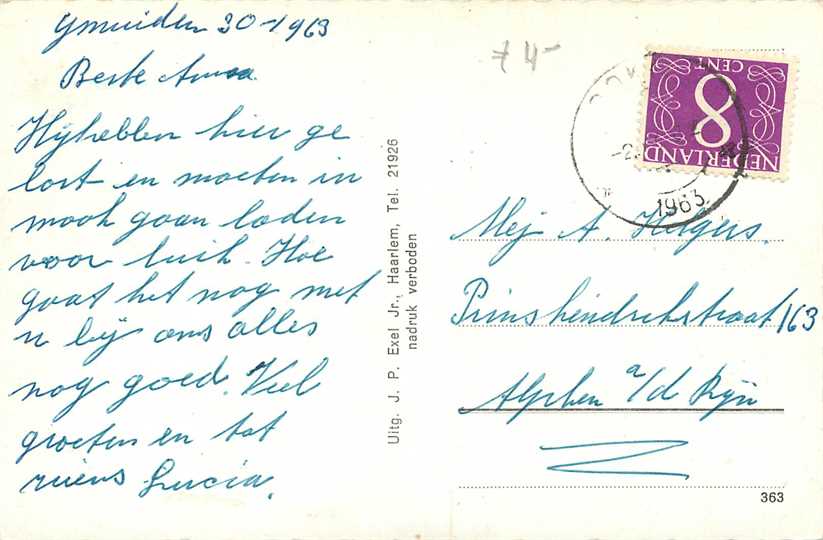 Ymuiden 30-1963
Beste Anna
Wij hebben hier ge
lost en moeten in
mook gaan laden
voor luik. Hoe
gaat het nog met
u bij ons alles
nog goed. Veel
groeten en tot
ziens Lucia.
Uitg. J. P. Exel Jr., Haarlem, Tel. 21926
nadruk verboden
7 4-
8
CENT
NEDERLAND
1963
Mej A. Helgers.
Prinshendrikstraat 163
Alphen a/d Rijn
363